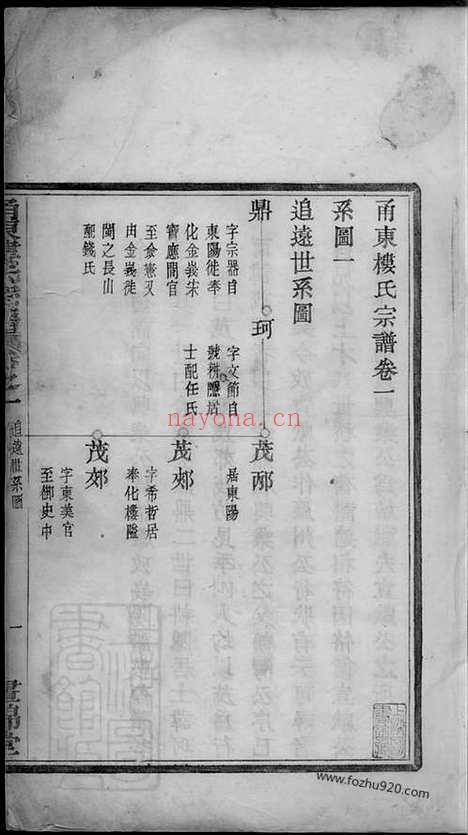 甬東樓氏宗譜卷一
系圖一
追遠世系圖
鼎
字宗器自
東陽徙奉
化金峩宋
寶應間官
至僉憲又
由金峩徙
閩之長山
配錢氏
珂
字文簡自
號耕隱居
士配任氏
茂邴
居東陽
茂郟
字希哲居
奉化樓隘
茂郊
字東美官
至御史中
追遠世系圖
一
晝錦堂
nayona.cn
www.fozhu920.com